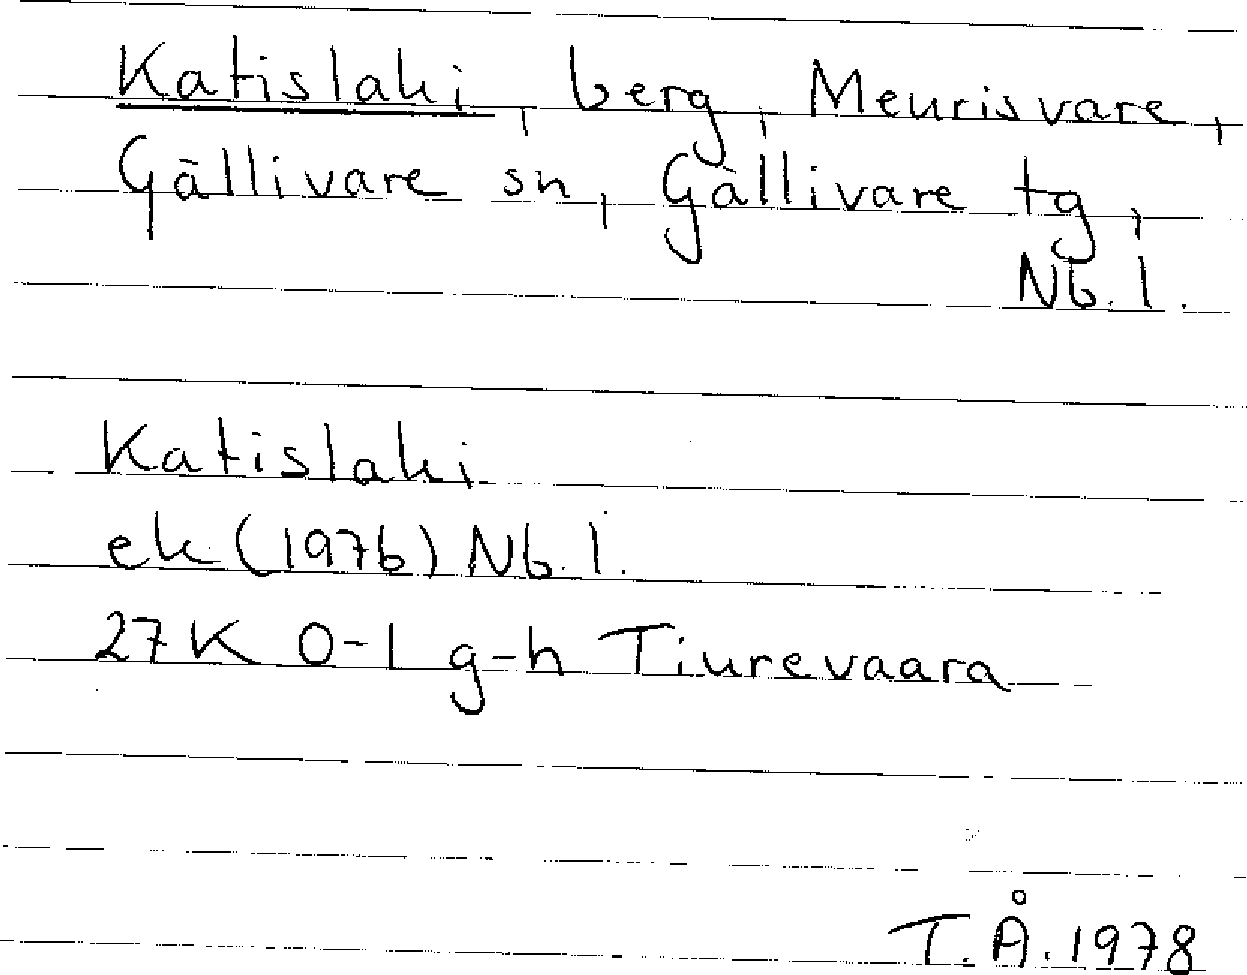 Katislaki, berg, Meurisvare,
Gällivare sn, Gällivare tg,
Nb. l.
Katislaki
ek (1976) Nb. l.
27K 0-1 g-h Tiurevaara
T. Å. 1978